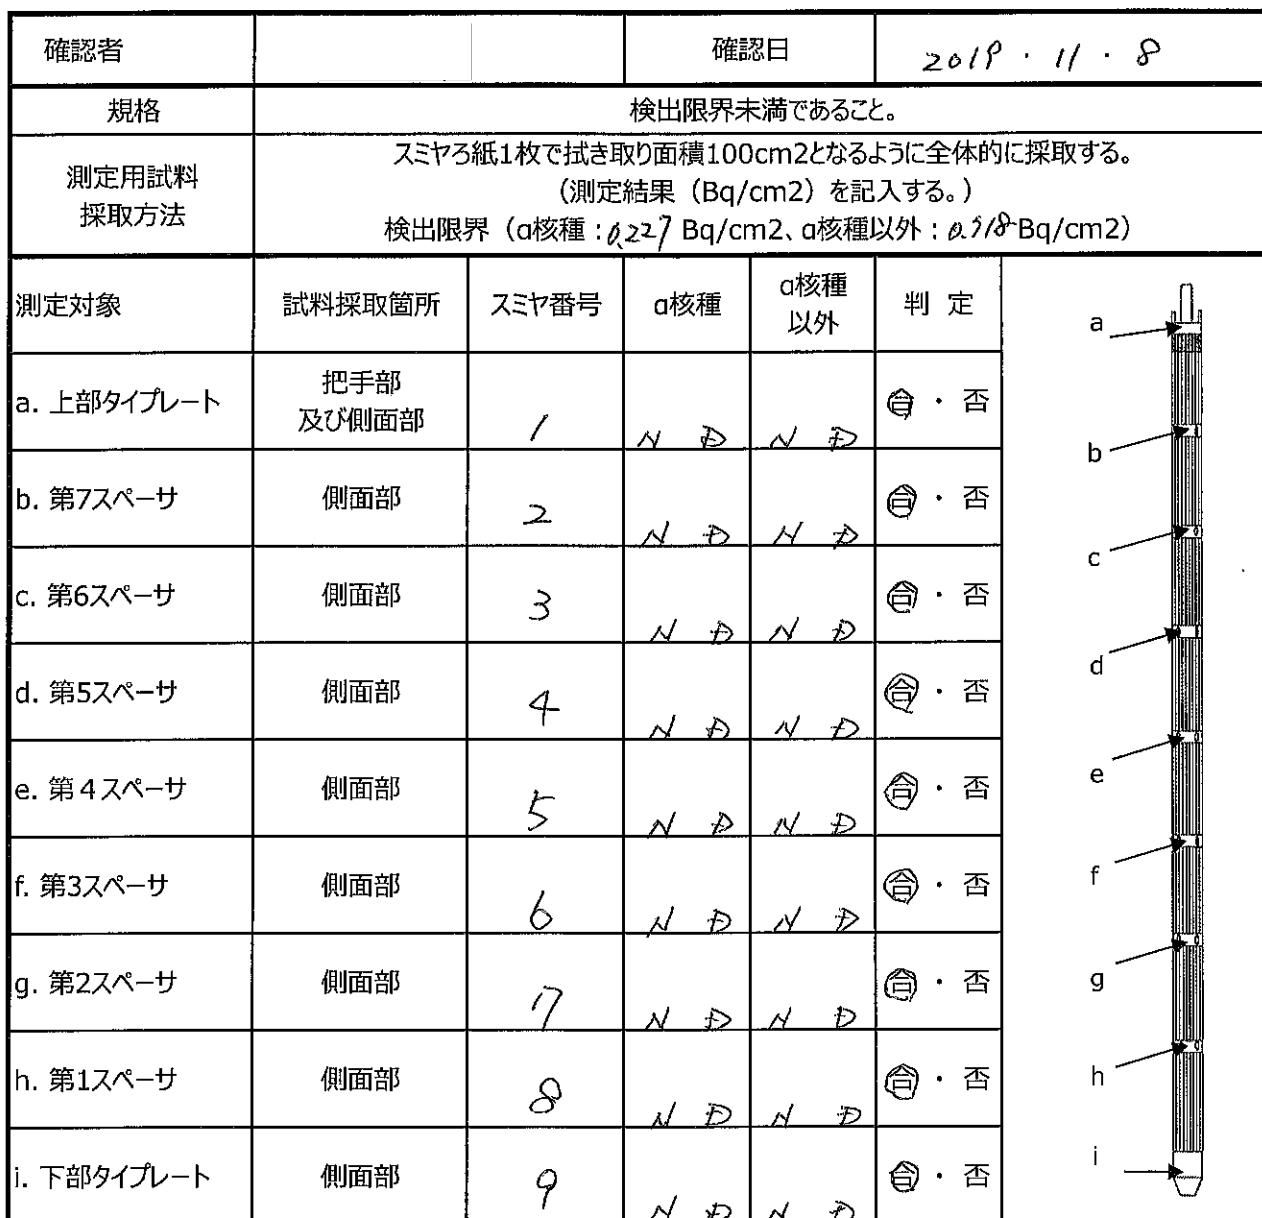 確認者 確認日 2019・11・8
規格 検出限界未満であること。
測定用試料
採取方法
スミヤろ紙1枚で拭き取り面積100cm2となるように全体的に採取する。
(測定結果(Bq/cm2)を記入する。)
検出限界(α核種:0.227 Bq/cm2、α核種以外: Bq/cm2)
測定対象 試料採取箇所 スミヤ番号 α核種 α核種以外 判 定
a. 上部タイプレート 把手部及び側面部 1 N D N D 合・否
b. 第7スペーサ 側面部 2 N D N D 合・否
c. 第6スペーサ 側面部 3 N D N D 合・否
d. 第5スペーサ 側面部 4 N D N D 合・否
e. 第4スペーサ 側面部 5 N D N D 合・否
f. 第3スペーサ 側面部 6 N D N D 合・否
g. 第2スペーサ 側面部 7 N D N D 合・否
h. 第1スペーサ 側面部 8 N D N D 合・否
i. 下部タイプレート 側面部 9 N D N D 合・否
a
b
c
d
e
f
g
h
i